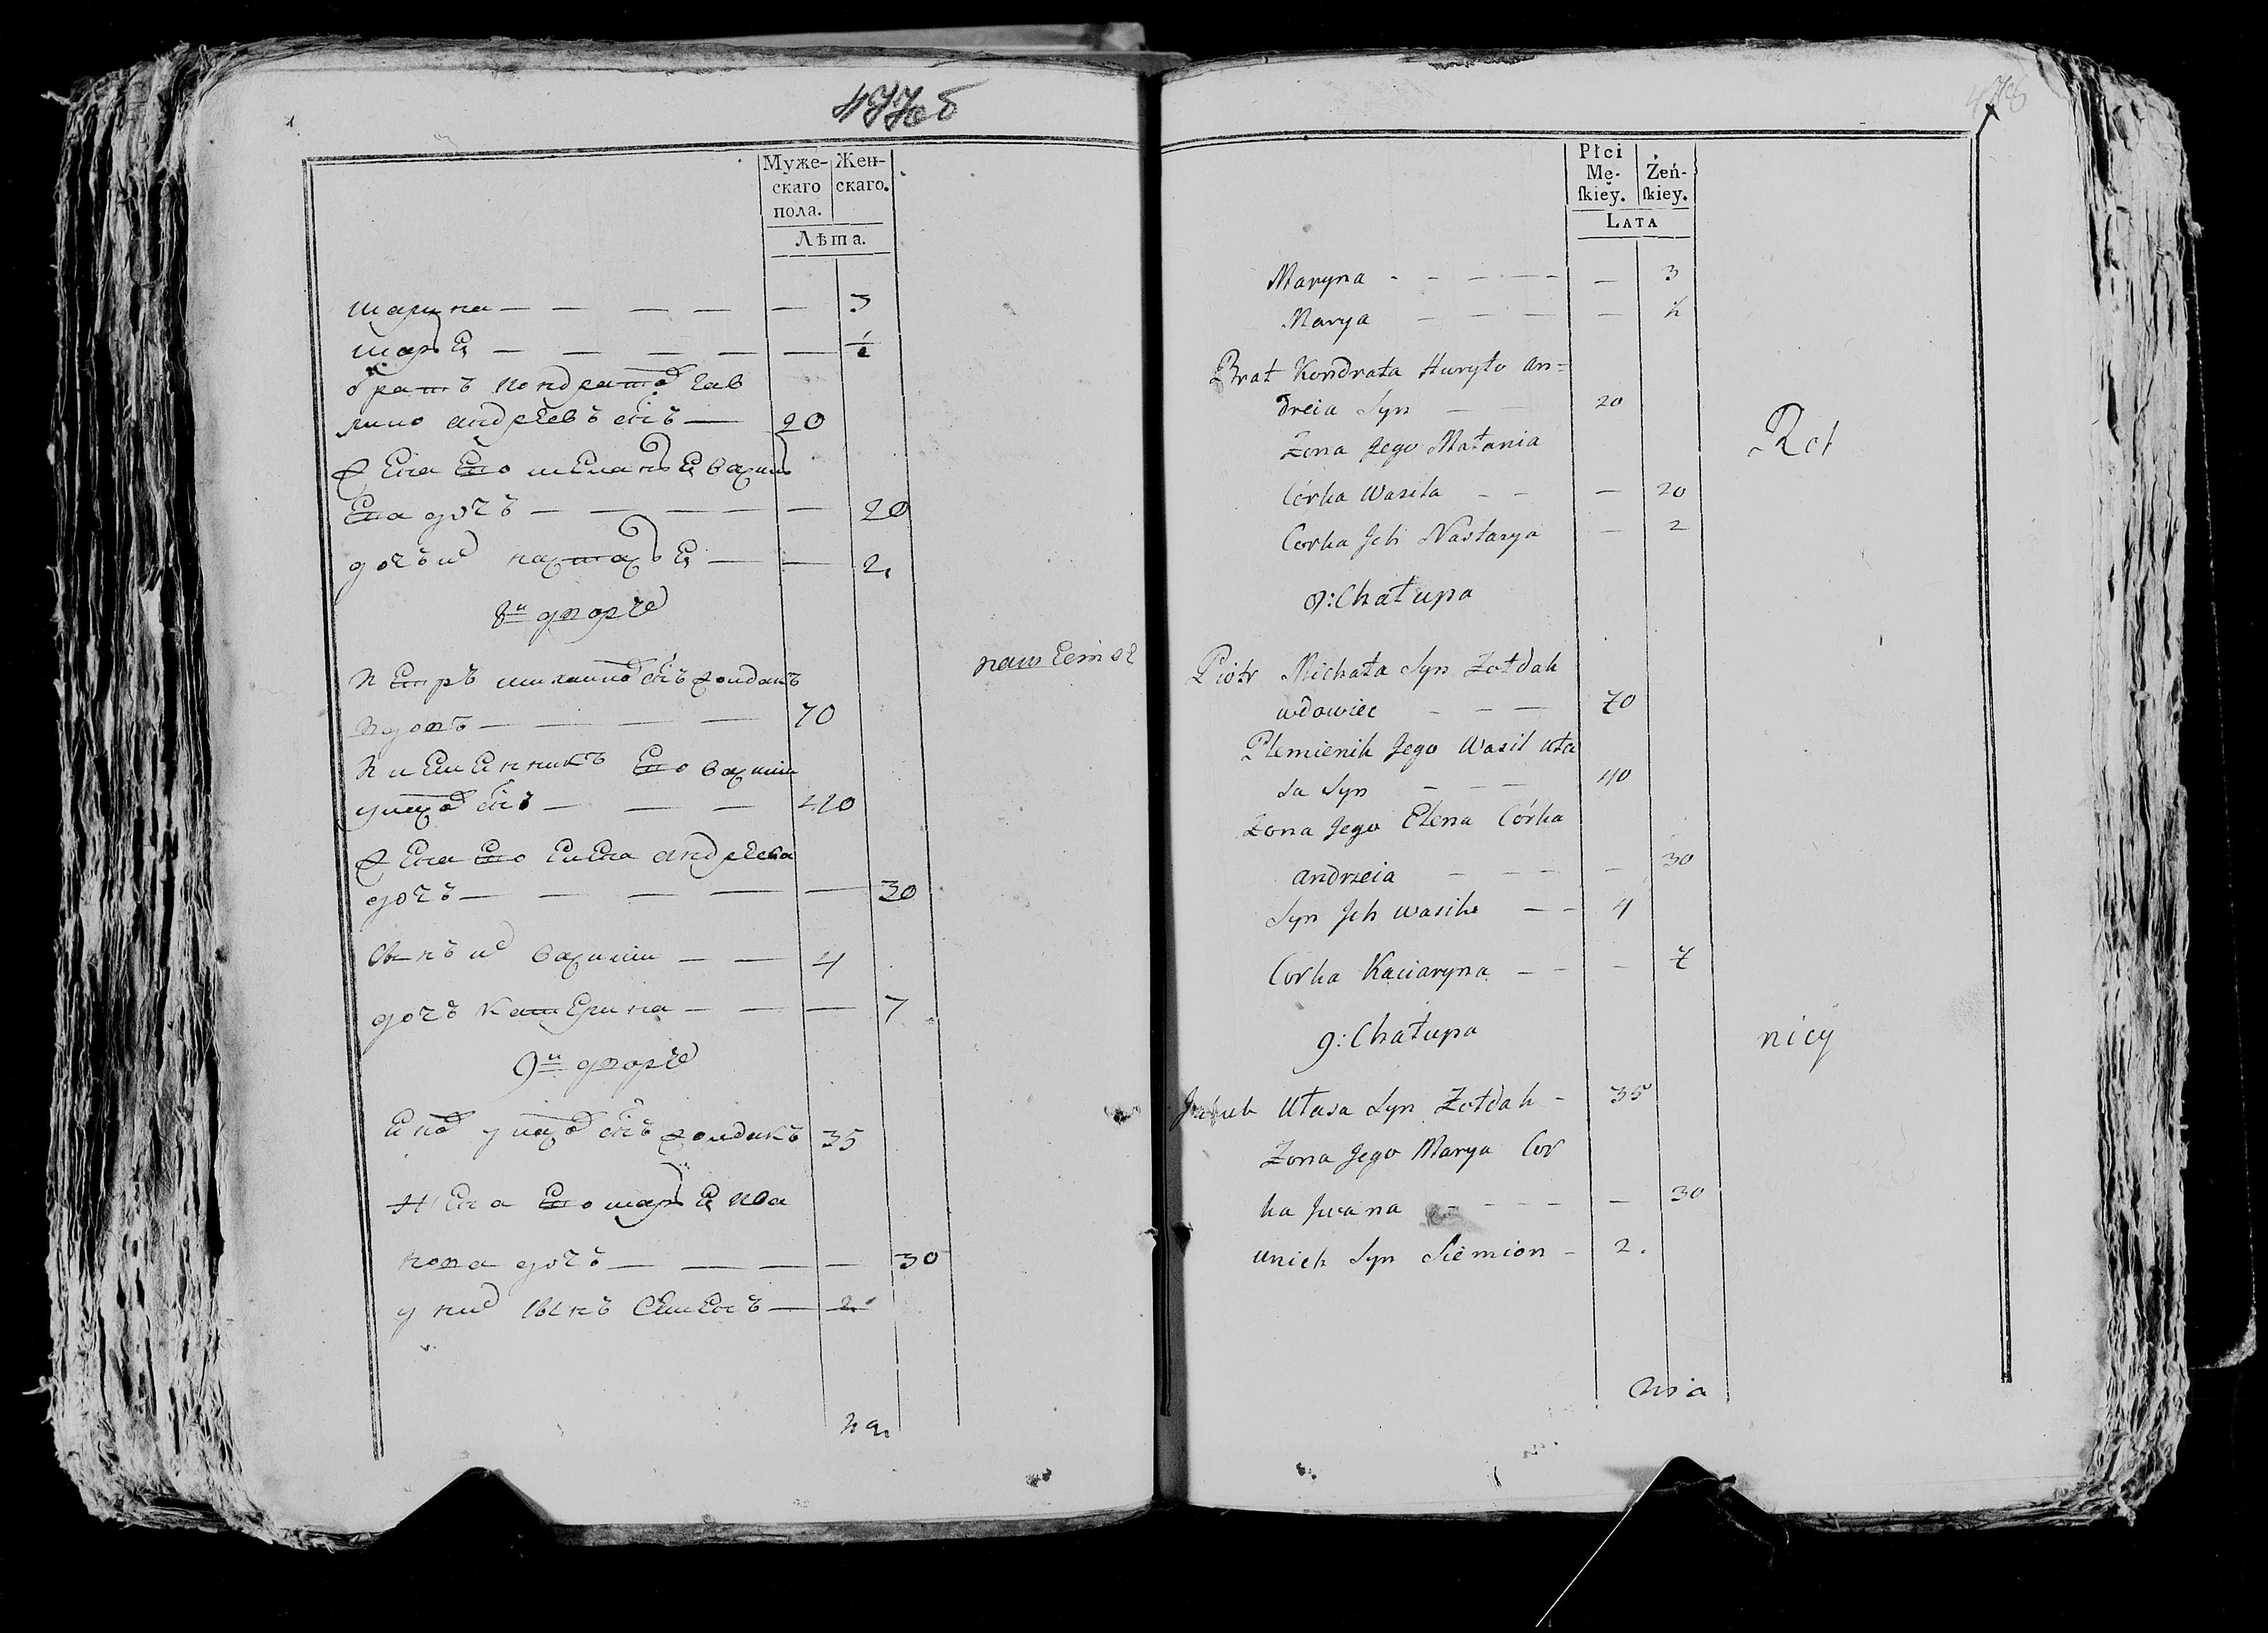 Муже-
скаго
пола.
Жен-
скаго.
Лѣта.
марина — — — — — 3
марья — — — — — ½
братъ кондратов гав
рило андреевъ снъ — 20
жена его меланья васил
ева дочь — — — — — 20
дочь их настасья — — 2.
8й дворе
Петръ михайлов снъ жолдакъ
вдовъ — — — — 70
племенникъ его василй
уласов снъ — — — 40
жена его елена андреева
дочь — — — — — 30
сынъ их василй — — 4
дочь катерина — — — 7
9й дворе
уласов снъ жолдакъ 35
жена его марья ива
нова дочь — — — — 30
у них сынъ семенъ — 2
Płci
Mę-
ſkiey.
Żeń-
ſkiey.
LATA
Maryna - - — — - — 3
Marya — — — — ½
Brat Kondrata Huryło an=
dreia Syn — — 20
Zona Jego Małania
Córka Wasila - - — 20
Corka Jch Nastazya — 2
8: Chałupa
Piotr Michała Syn Zołdak
wdowiec - — — 70
Plemienik Jego Wasil uła
sa Syn - — — 40
Zona Jego Elena Córka
andrzeia - - — - — 30
Syn Jch wasil — - 4
Corka Kaciaryna — - - 7
9: Chałupa
Jakub Ułasa Syn Zołdak - 35
Zona Jego Marya Cor
ka Jwana - - - — — 30
unich Syn Siemion - 2.
Rel
nicy